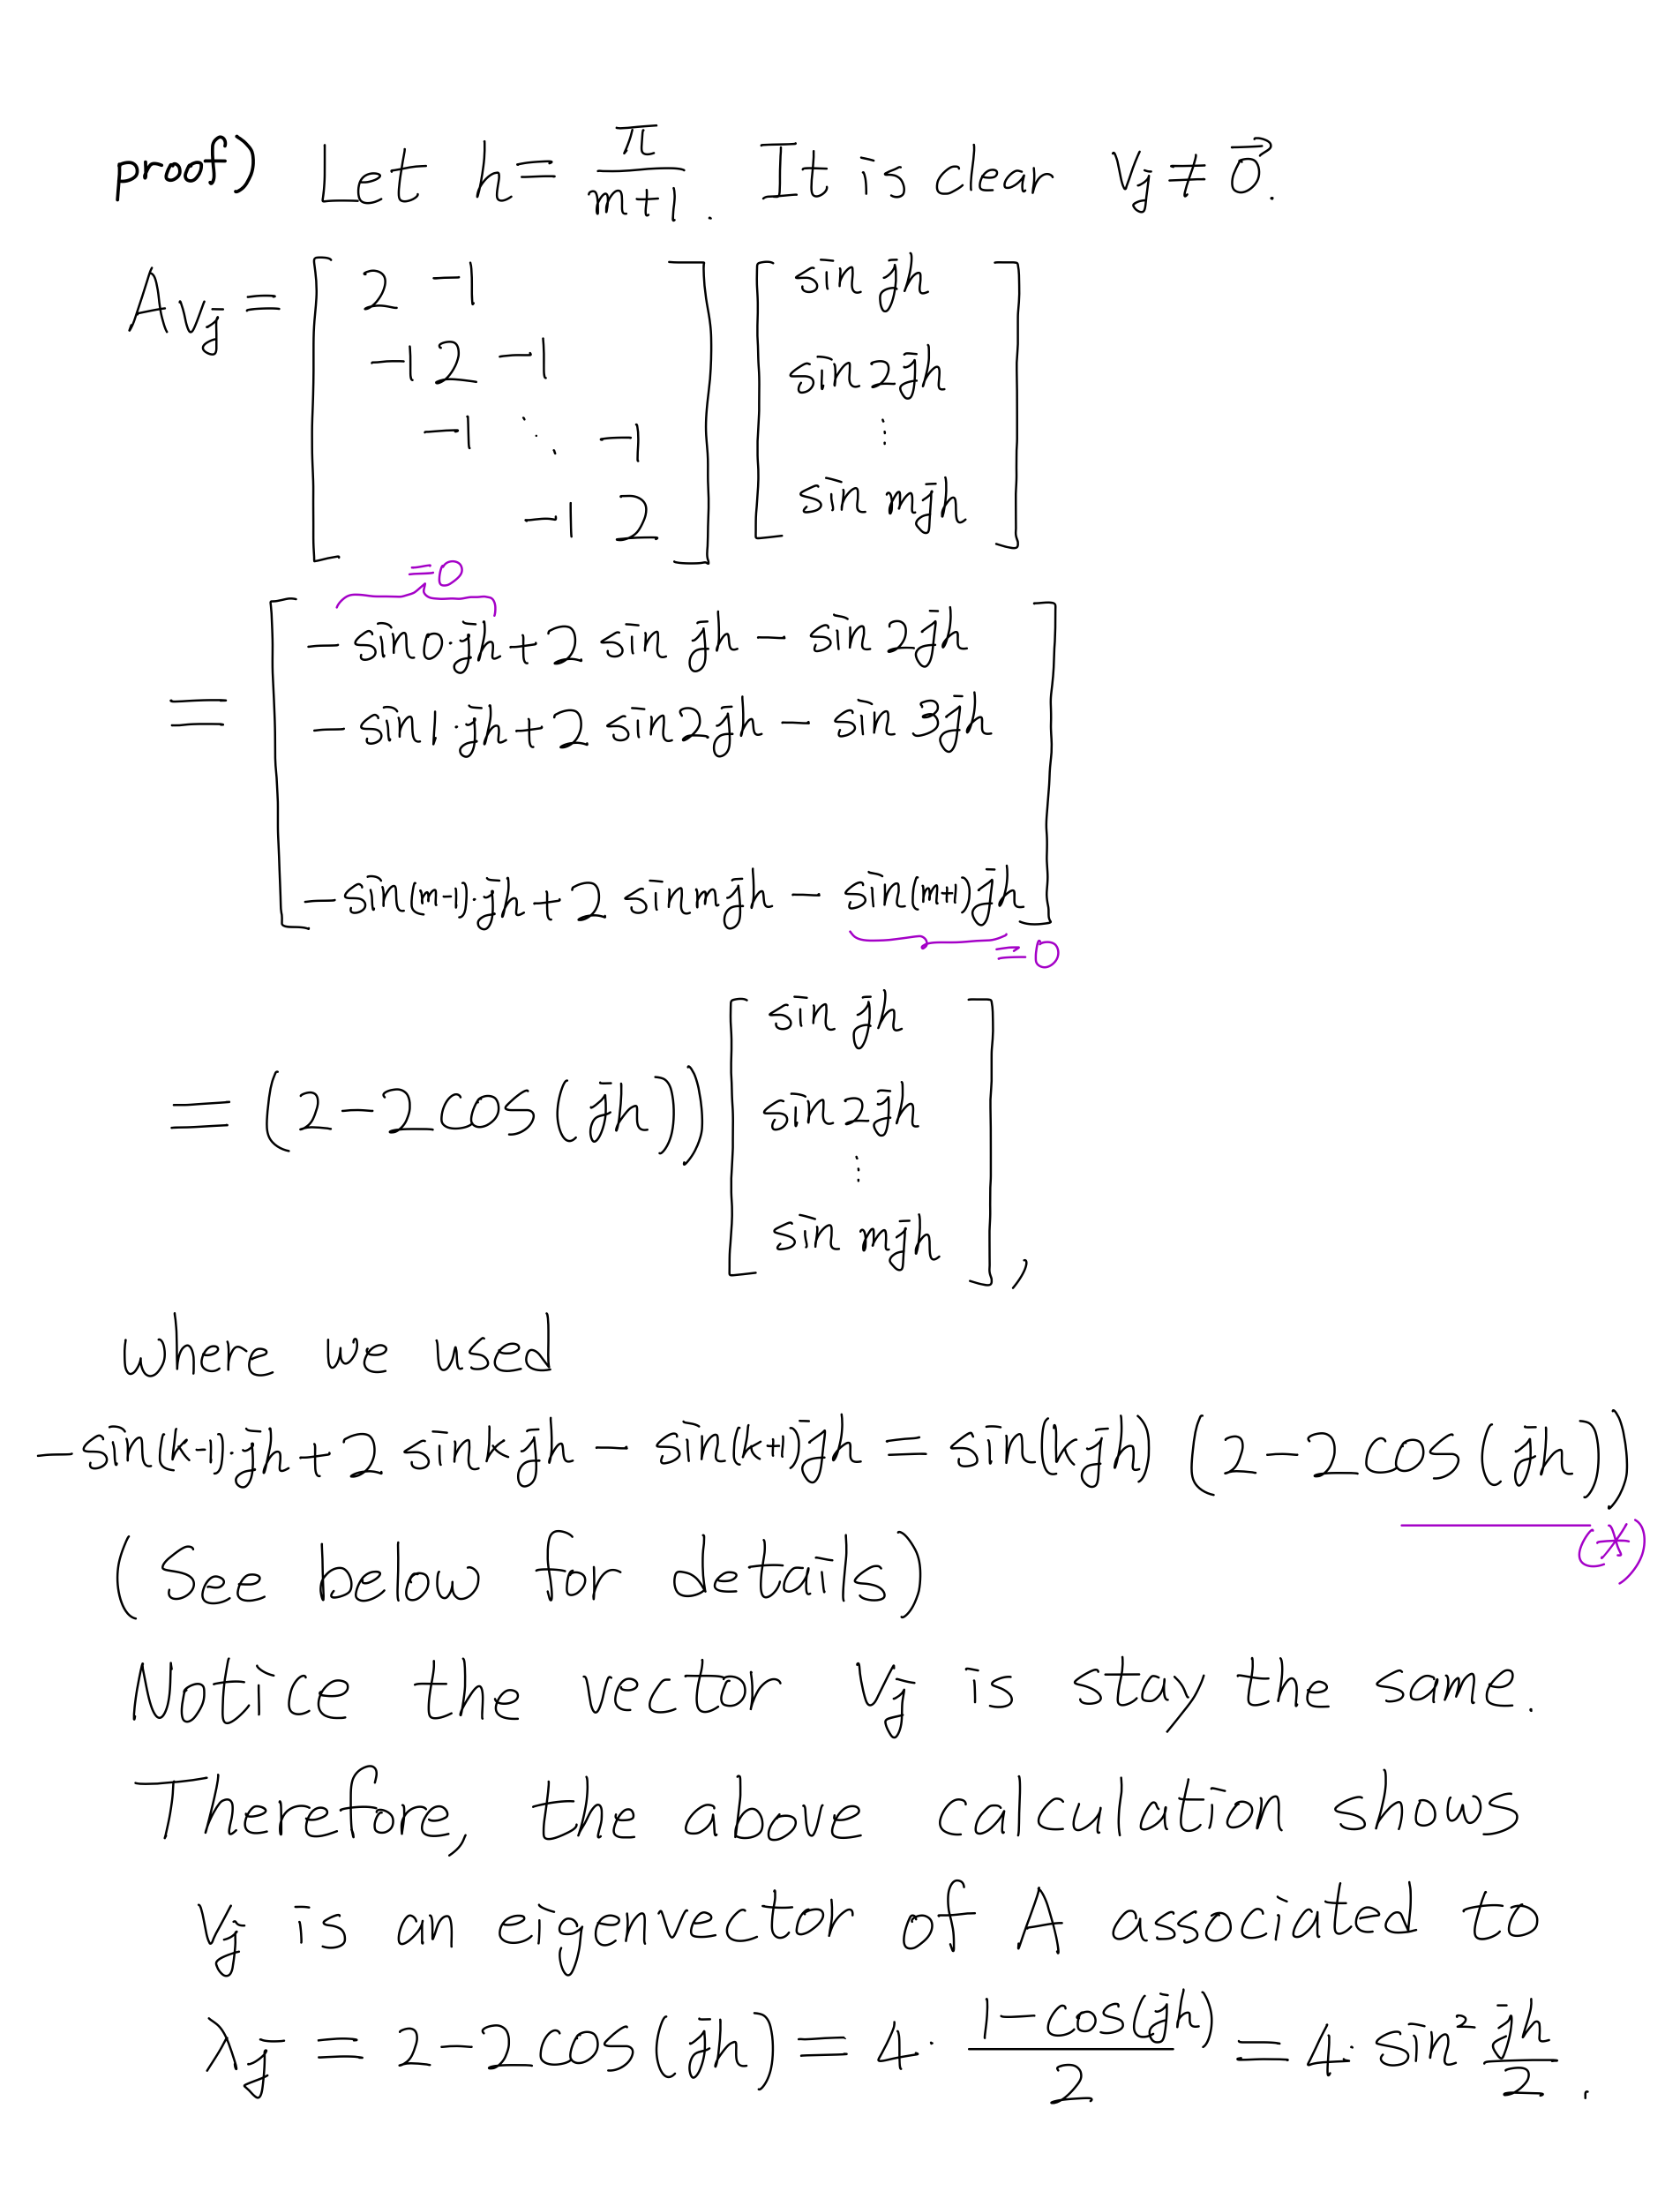 proof) Let h = π/(m+1). It is clear v_j ≠ 0⃗.
Av_j = [ 2 -1
-1 2 -1
-1 ⋱ -1
-1 2 ] [ sin jh
sin 2jh
⋮
sin mjh ]
=0
= [ - sin0·jh + 2 sin jh - sin 2jh
- sin1·jh + 2 sin2jh - sin 3jh
- sin(m-1)·jh + 2 sinmjh - sin(m+1)jh ]
=0
= (2-2cos(jh)) [ sin jh
sin 2jh
⋮
sin mjh ],
where we used
- sin(k-1)·jh + 2 sinkjh - sin(k+1)jh = sin(kjh) (2-2cos(jh))
(*)
(See below for details)
Notice the vector v_j is stay the same.
Therefore, the above calculation shows
v_j is an eigenvector of A associated to
λ_j = 2-2cos(jh) = 4· (1-cos(jh))/2 = 4· sin² jh/2.